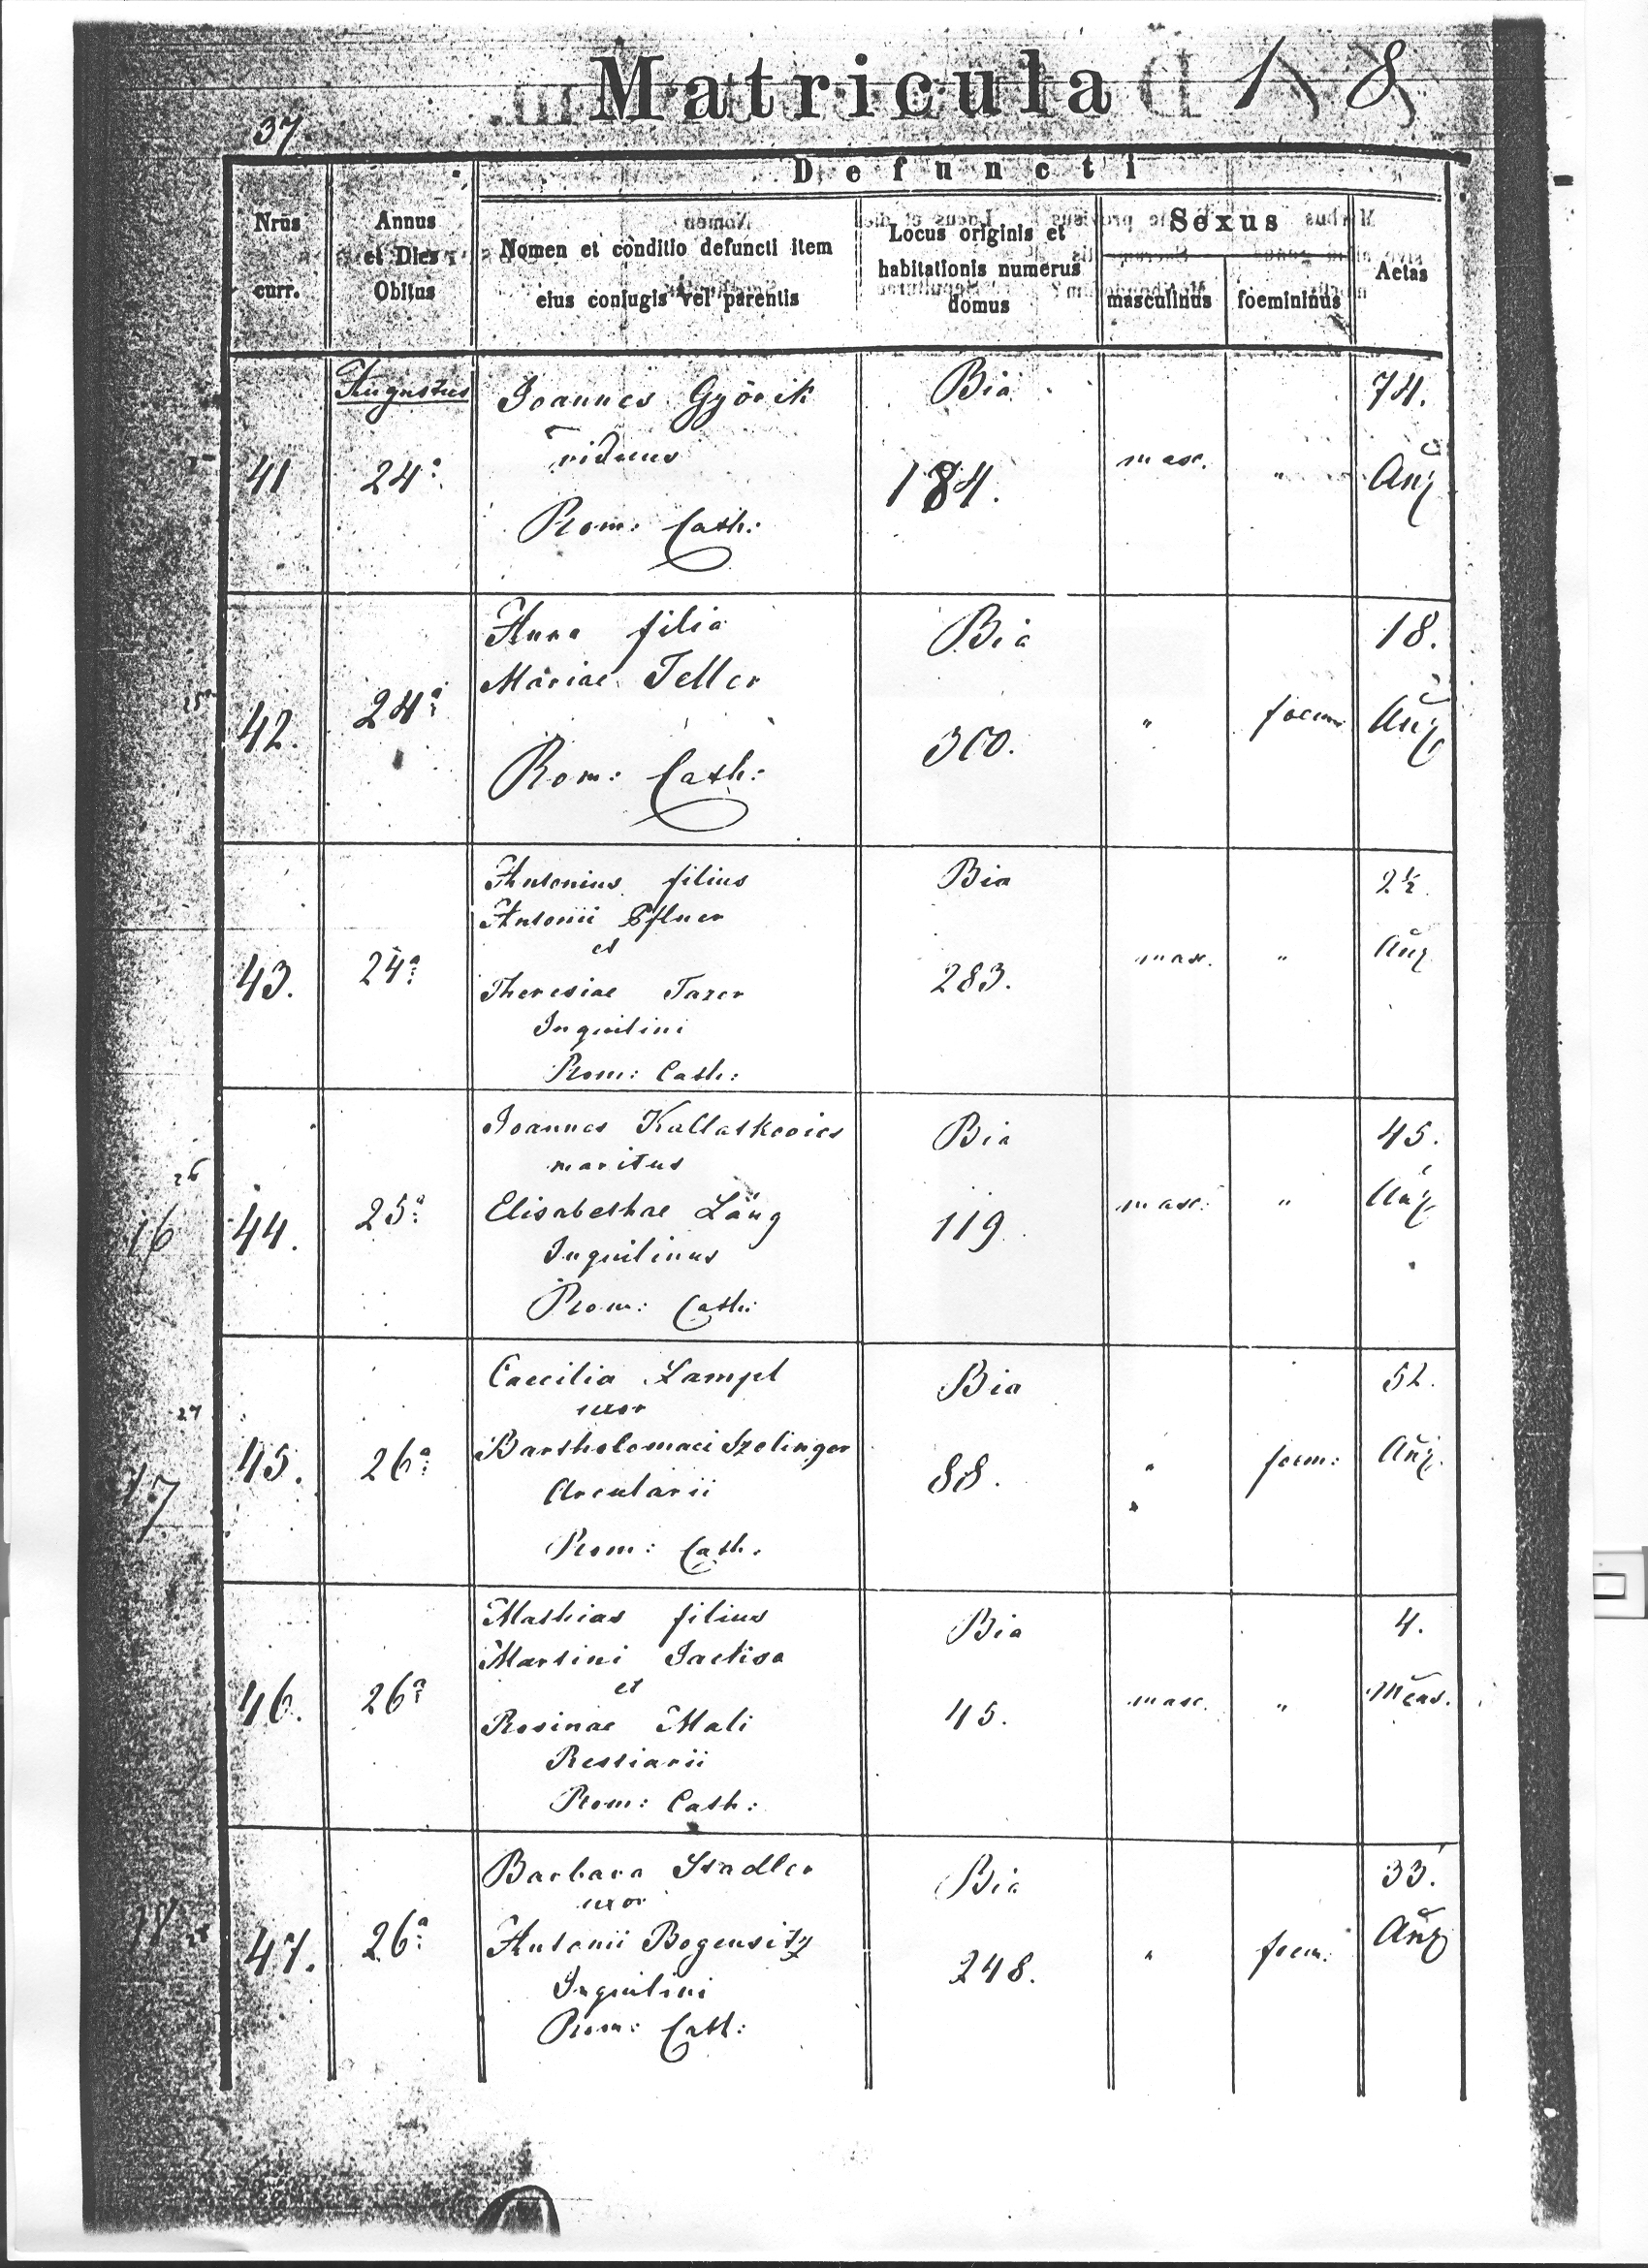 Matricula 18
37
Defuncti
Nrus curr.
Annus et Dies Obitus
Nomen et conditio defuncti item eius coniugis vel parentis
Locus originis et habitationis numerus domus
Sexus
masculinus
foemininus
Aetas
Augustus
41
24a
Joannes Györik
viduus
Rom: Cath:
Bia
184.
masc.
"
74.
Anz
25a
42.
24a
Anna filia
Mariae Teller
Rom: Cath:
Bia
300.
"
foem
18.
Anz
43.
24a
Antonius filius
Antonii
et
Theresiae Taxer
Inquilini
Rom: Cath:
Bia
283.
masc.
"
2 1/2
Anz
26
16
44.
25a
Joannes Kallaskovics
maritus
Elisabethae Láng
Inquilinus
Rom: Cath:
Bia
119
masc:
"
45.
Anz
27
17
45.
26a
Caecilia Lampl
uxor
Bartholomaei Szelinger
Arcularii
Rom: Cath.
Bia
88.
"
foem:
52.
Anz.
46.
26a
Mathias filius
Martini
et
Rosinae Mali
Restiarii
Rom: Cath:
Bia
45.
masc.
"
4.
Mens.
18
28
47.
26a
Barbara Stadler
uxor
Antonii Bogensitz
Inquilini
Rom: Cath:
Bia
248.
"
foem:
33.
Anz